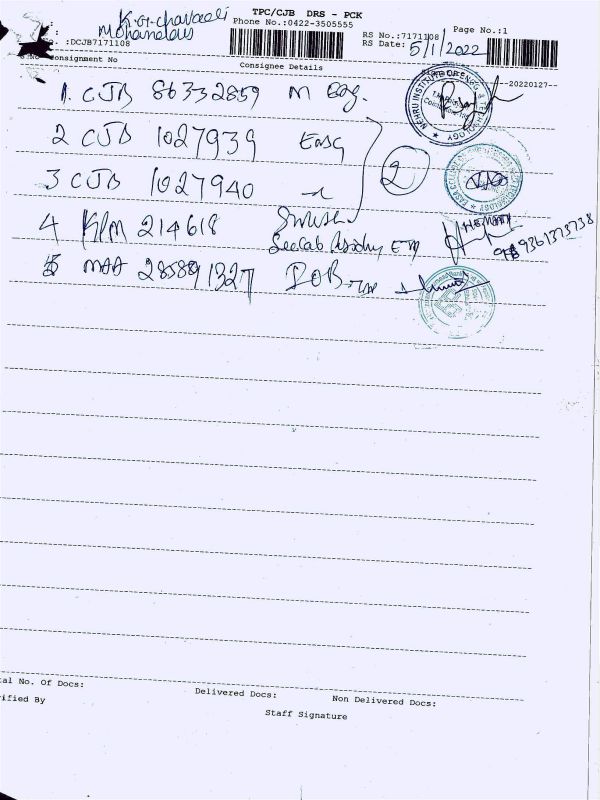 K.G. chavadi
Mohandas
TPC/CJB DRS - PCK
Phone No.:0422-3505555
RS No.:7171108
Page No.:1
RS Date: 5/1/2022
:DCJB7171108
onsignment No
Consignee Details
--20220127--
1. CJB 86332859 M Eng.
2 CJB 1027939
3 CJB 1027940
2
4 KPM 214618
5 MAA 285891327 IOB
NEHRU INSTITUTE OF ENGG & TECHNOLOGY
9361373738
tal No. Of Docs:
Delivered Docs:
Non Delivered Docs:
rified By
Staff Signature